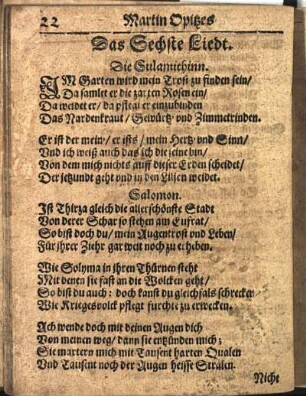 22
Martin Opitzes
Das Sechste Liedt.
Die Sulamithinn.
IM Garten wird mein Trost zu finden sein/
Da samlet er die zarten Rosen ein/
Da weidet er/ da pflegt er einzubinden
Das Nardenkraut/ Gewürtz und Zimmetrinden.
Er ist der mein/ er ists/ mein Hertz und Sinn/
Vnd ich weiß auch das ich die seine bin/
Von dem mich nichts auff dieser Erden scheidet/
Der jetzundt geht und in den Lilien weidet.
Salomon.
Ist Thirza gleich die allerschönste Stadt
Von derer Schar so stehen am Eufrat/
So bist doch du/ mein Augentrost und Leben/
Für ihrer Ziehr gar weit noch zu erheben.
Wie Solyma in ihren Thürnen steht
Mit denen sie fast an die Wolcken geht/
So bist du auch: doch kanst du gleichfals schrecken
Wie Kriegesvolck pflegt furcht zu erwecken.
Ach wende doch mit deinen Augen dich
Von meinen weg/ dann sie entzünden mich;
Sie martern mich mit Tausent harten Qualen
Vnd Tausent noch der Augen heisse Stralen.
Nicht